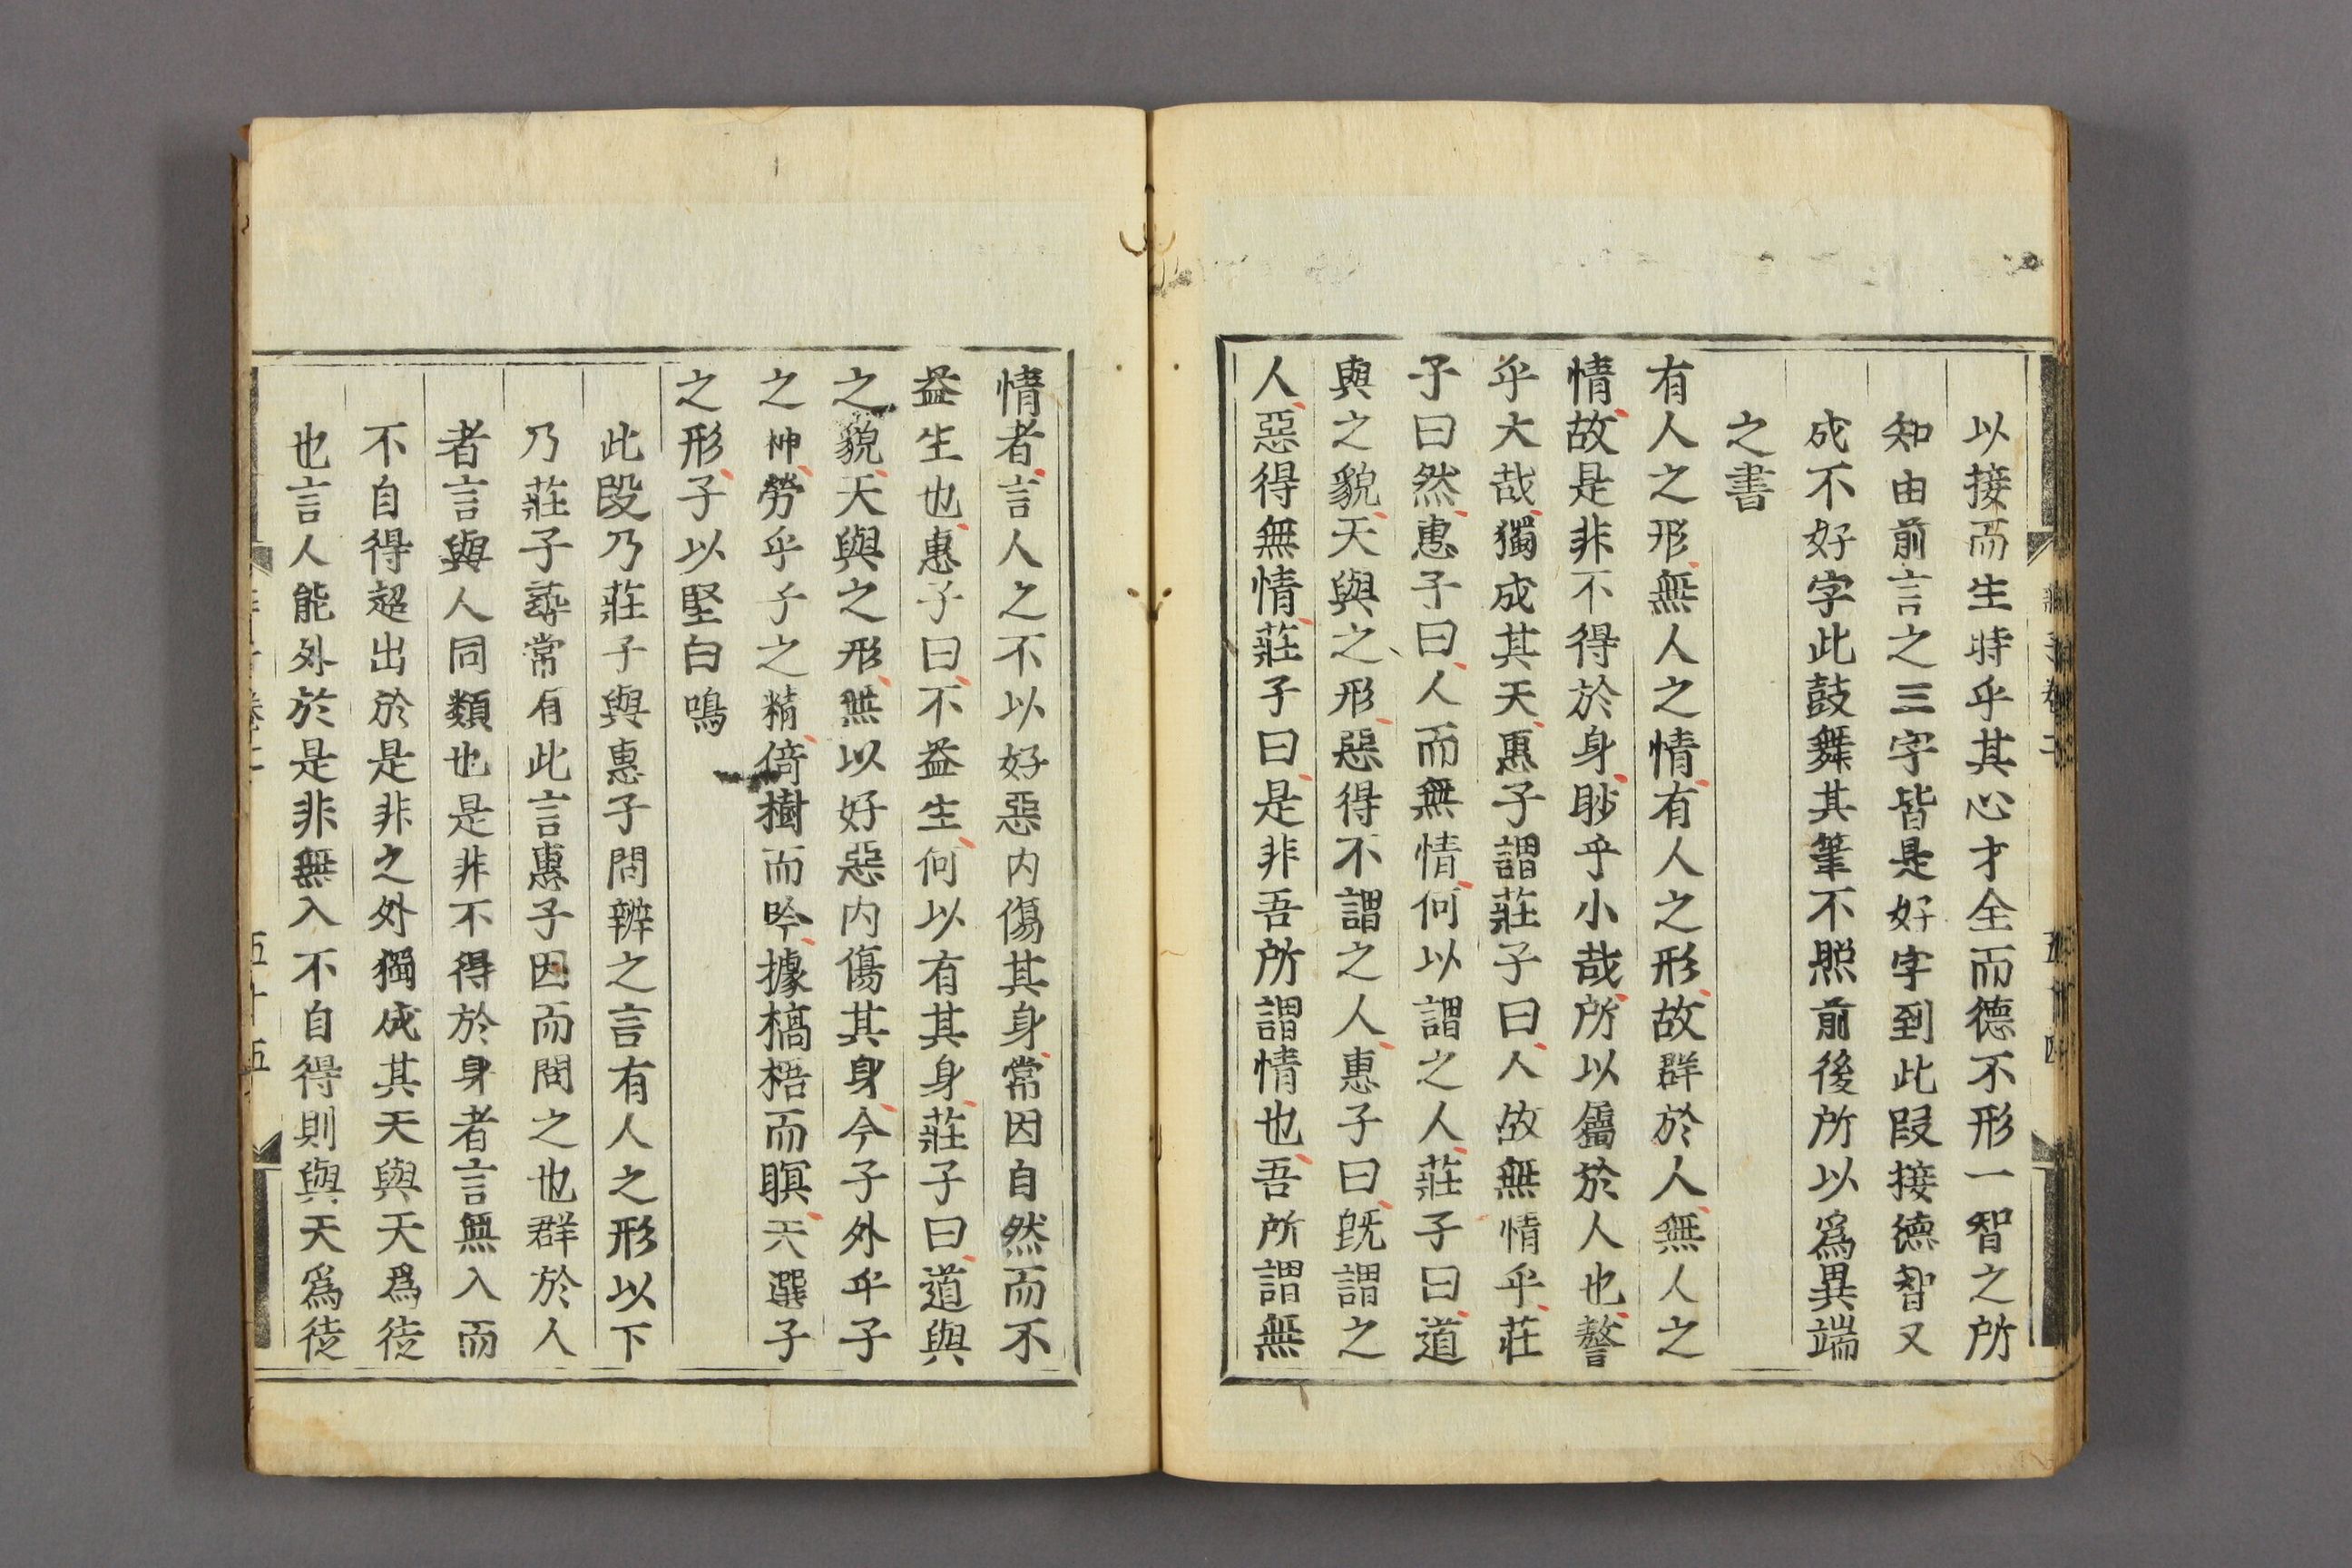 以接而生時乎其心才全而德不形一智之所
知由前言之三字皆是好字到此段接德智又
成不好字此鼓舞其筆不照前後所以爲異端
之書
有人之形無人之情有人之形故群於人無人之
情故是非不得於身眇乎小哉所以屬於人也謷
乎大哉獨成其天惠子謂莊子曰人故無情乎莊
子曰然惠子曰人而無情何以謂之人莊子曰道
與之貌天與之形惡得不謂之人惠子曰既謂之
人惡得無情莊子曰是非吾所謂情也吾所謂無
情者言人之不以好惡内傷其身常因自然而不
益生也惠子曰不益生何以有其身莊子曰道與
之貌天與之形無以好惡内傷其身今子外乎子
之神勞乎子之精倚樹而吟據槁梧而瞑天選子
之形子以堅白鳴
此段乃莊子與惠子問辨之言有人之形以下
乃莊子尋常有此言惠子因而問之也群於人
者言與人同類也是非不得於身者言無入而
不自得超出於是非之外獨成其天與天爲徒
也言人能外於是非無入不自得則與天爲徒
五十五